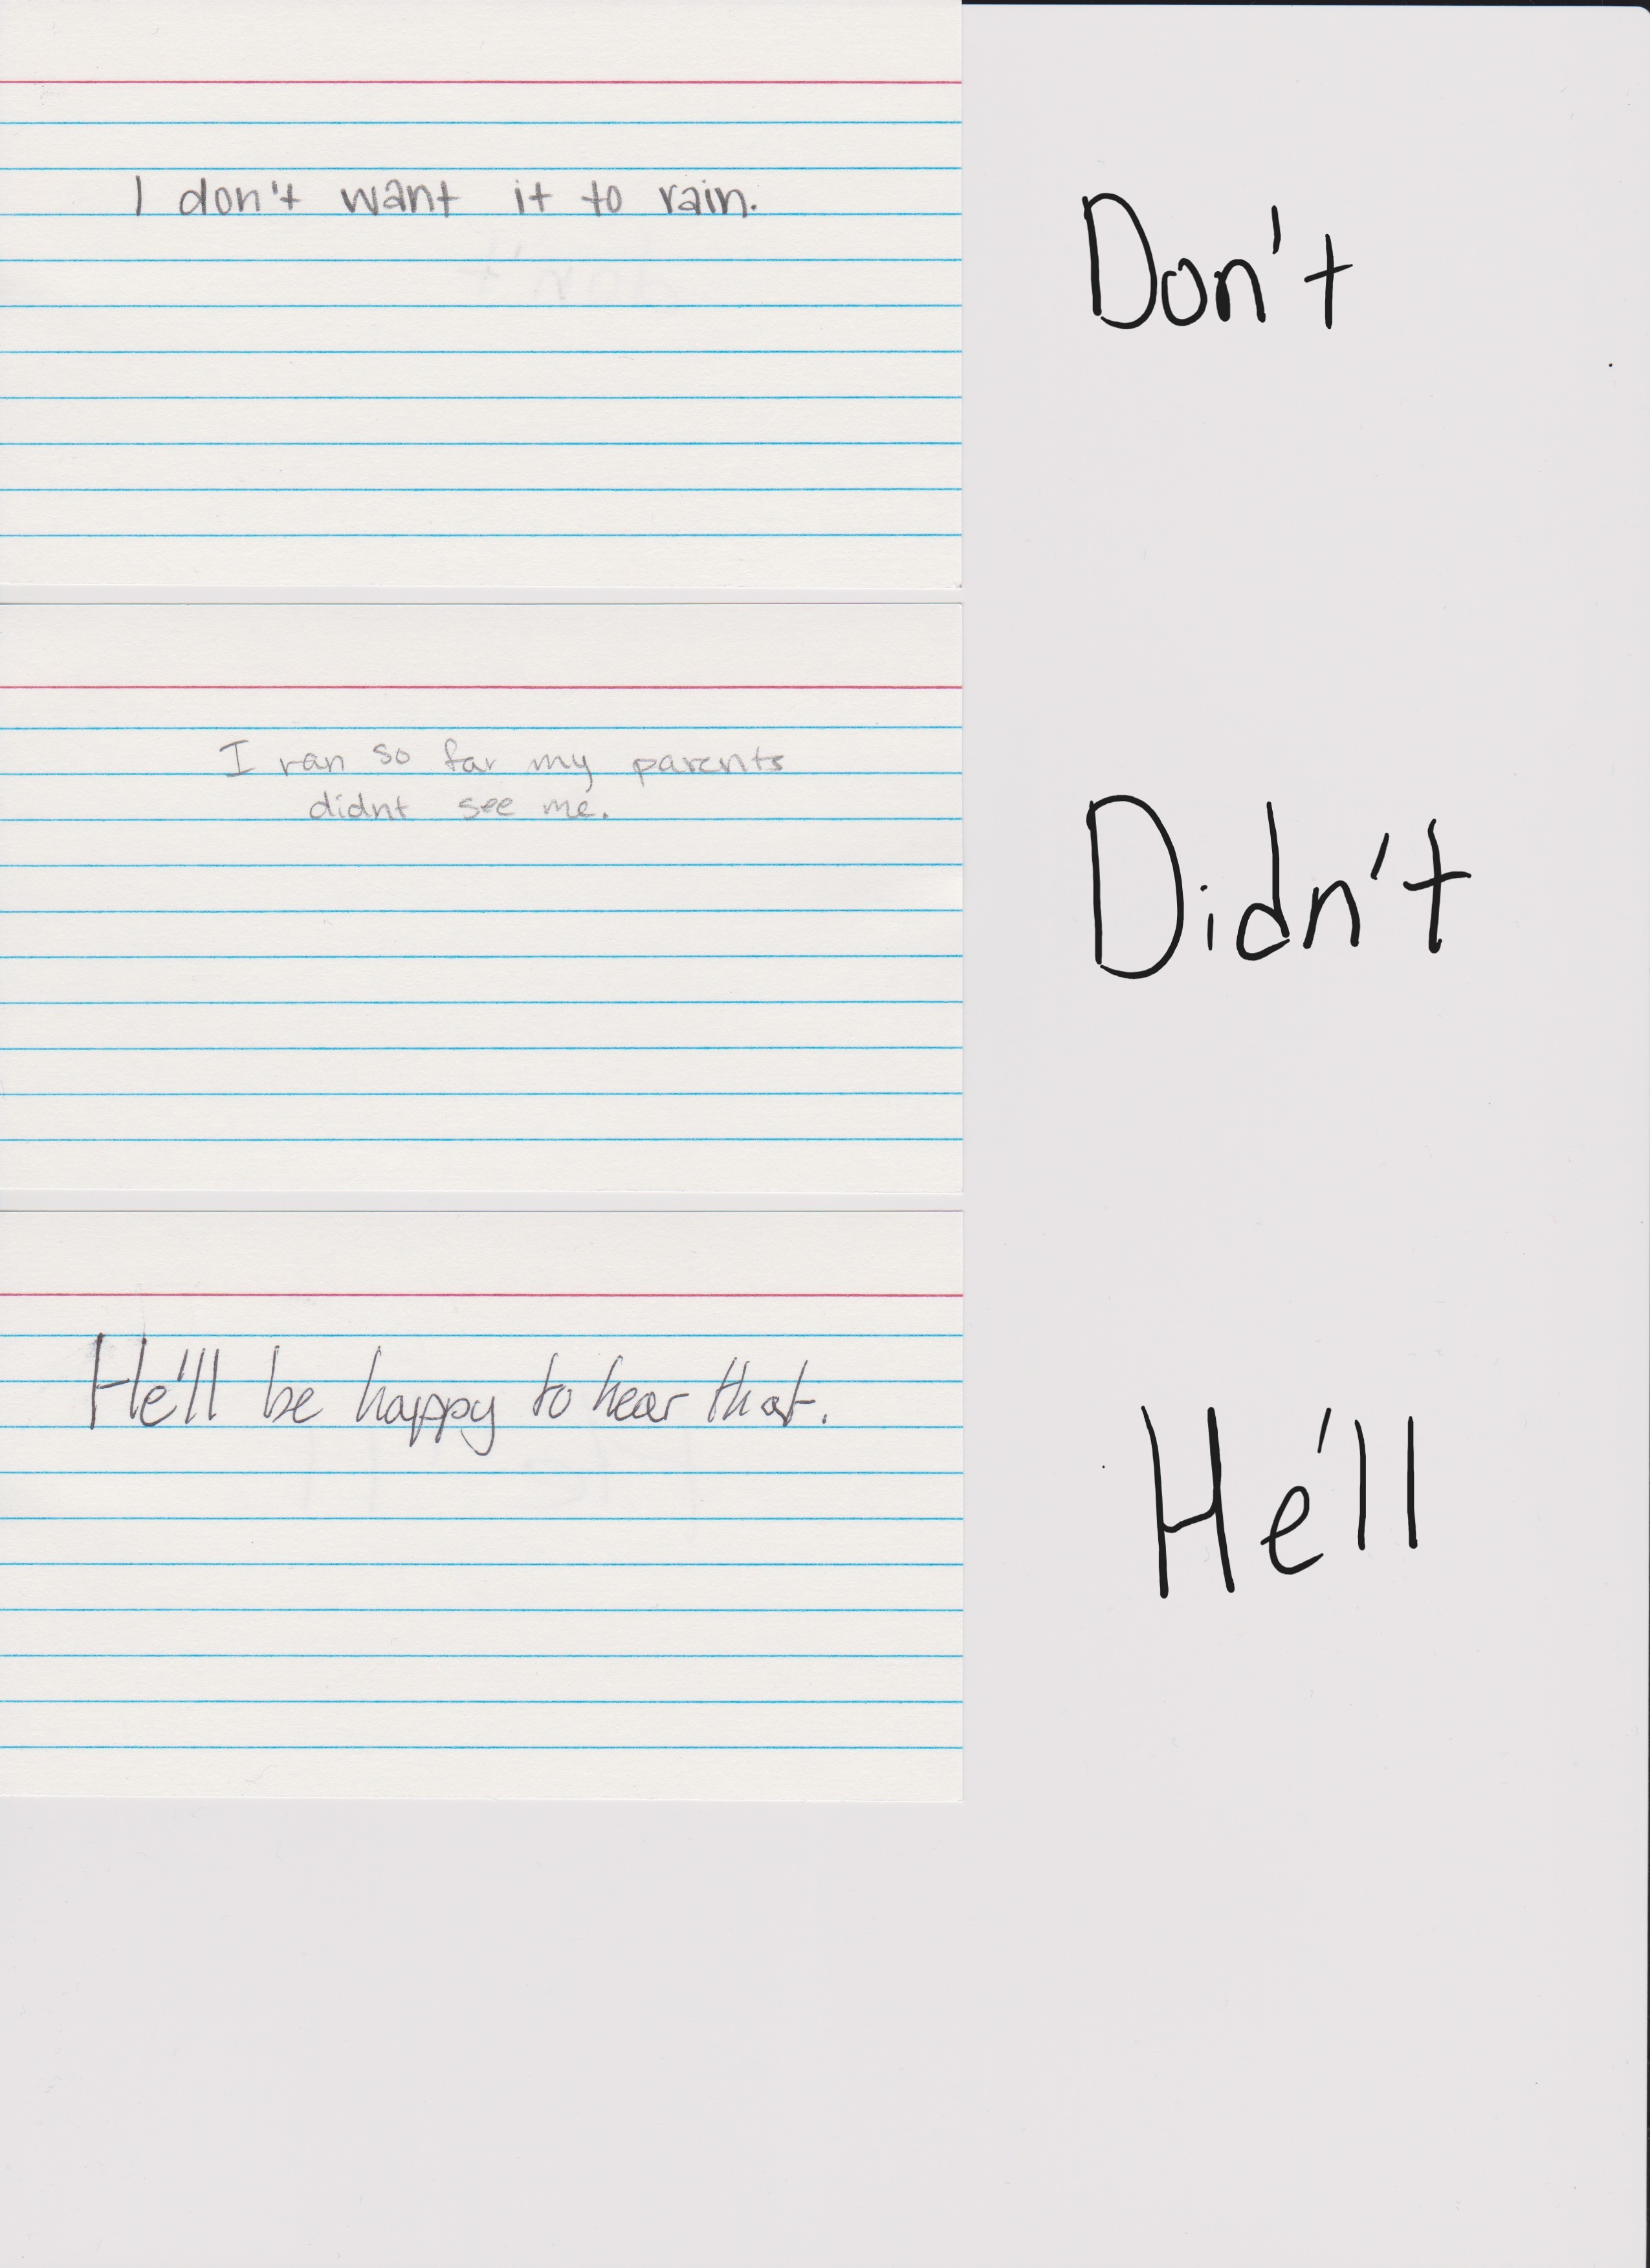 I don't want it to rain.
Don't
I ran so far my parents
didnt see me.
Didn't
He'll be happy to hear that.
He'll